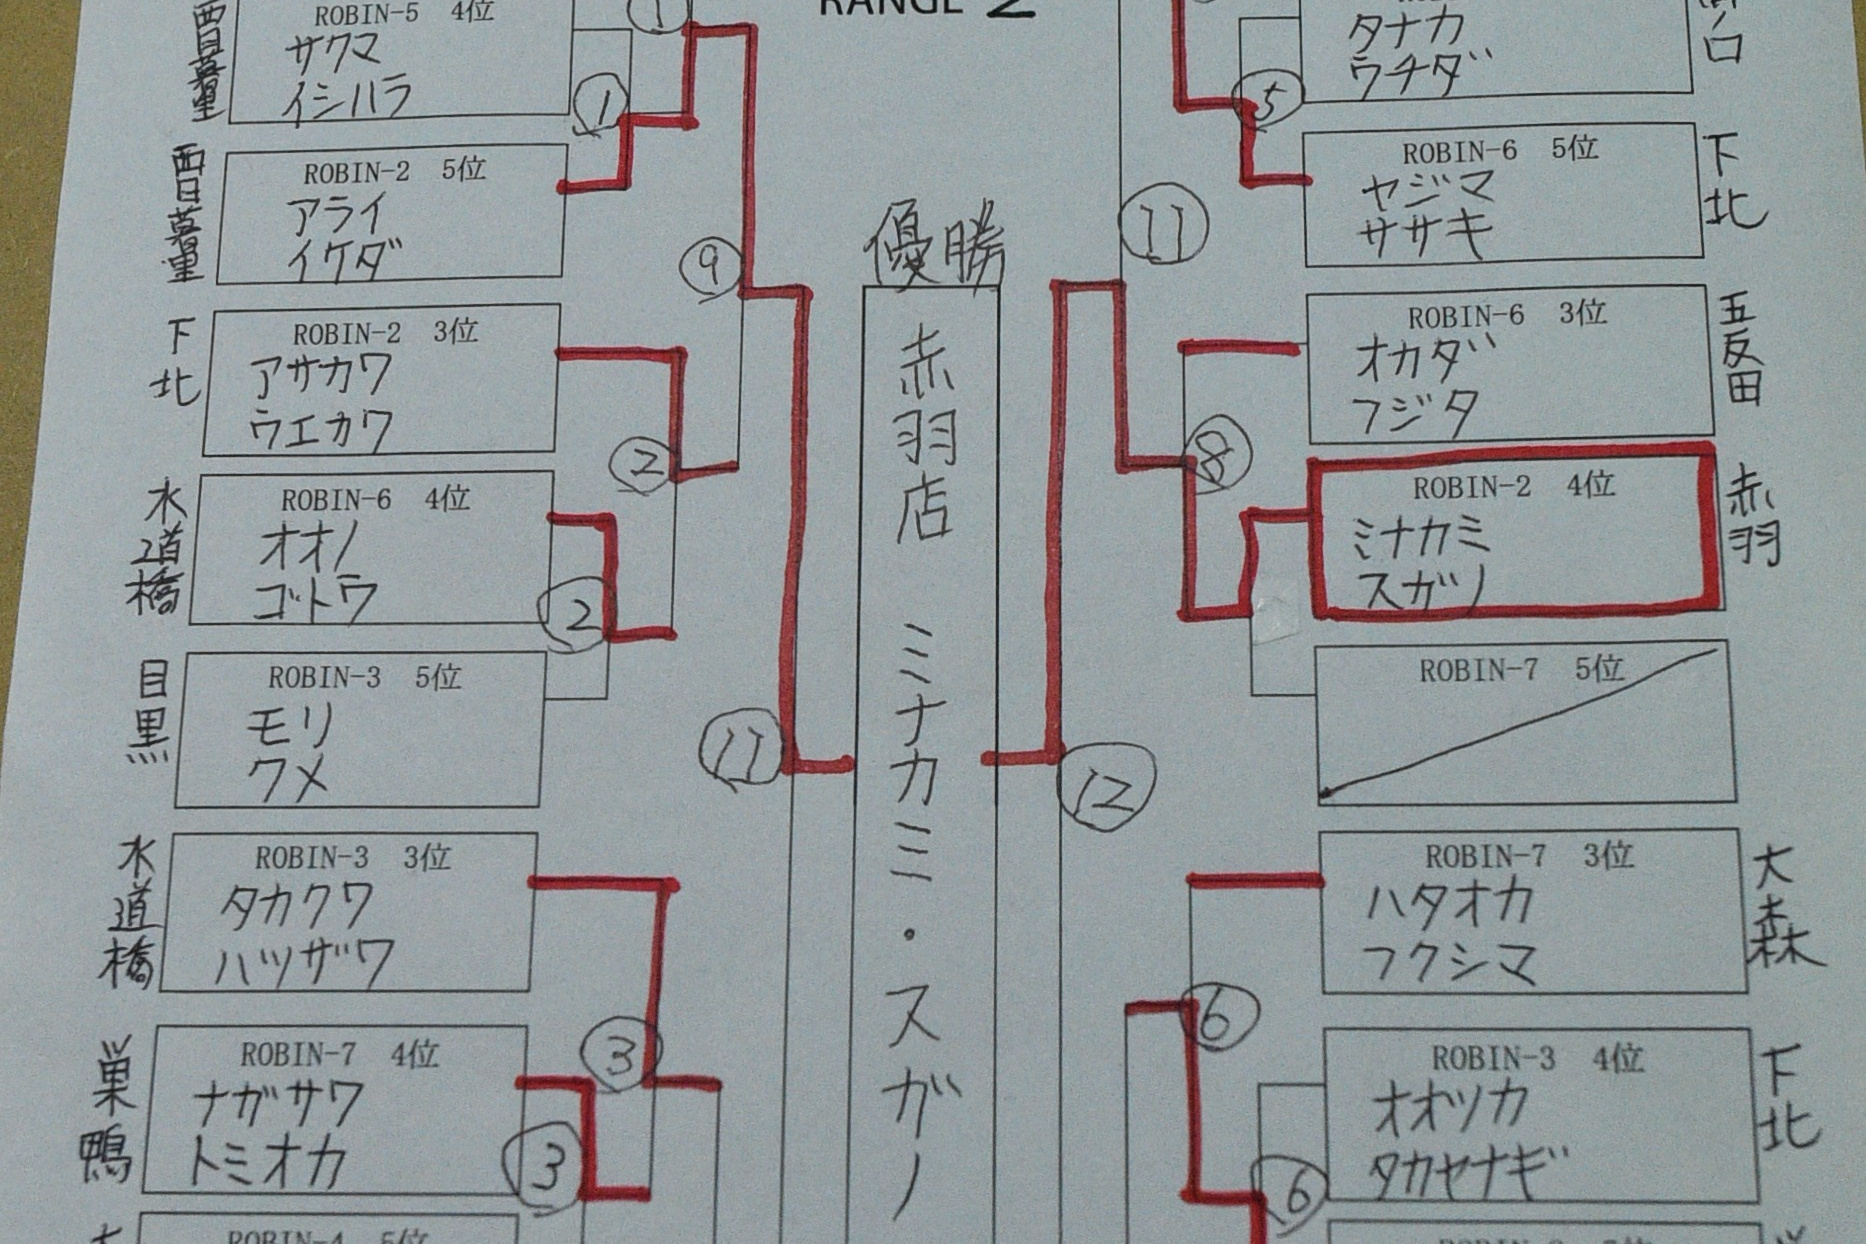 RANGE 2
ROBIN-5 4位
サクマ
イシハラ
西日暮里
①
①
ROBIN-2 5位
アライ
イケダ
西日暮里
⑨
ROBIN-2 3位
アサカワ
ウエカワ
下北
②
ROBIN-6 4位
オオノ
ゴトウ
水道橋
②
ROBIN-3 5位
モリ
クメ
目黒
⑪
ROBIN-3 3位
タカクワ
ハツザワ
水道橋
③
ROBIN-7 4位
ナガサワ
トミオカ
巣鴨
③
ROBIN-4 5位
優勝
赤羽店 ミナカミ・スガノ
タナカ
ウチダ
⑤
ROBIN-6 5位
ヤジマ
ササキ
下北
⑪
ROBIN-6 3位
オカダ
フジタ
五反田
⑧
ROBIN-2 4位
ミナカミ
スガノ
赤羽
ROBIN-7 5位
⑫
ROBIN-7 3位
ハタオカ
フクシマ
大森
⑥
ROBIN-3 4位
オオツカ
タカヤナギ
下北
⑥